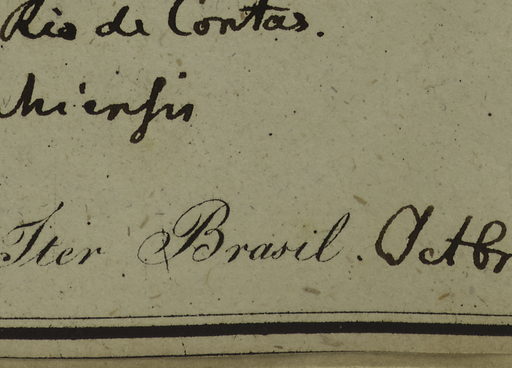 Rio de Contas.
hiensis
Iter Brasil. Octbr